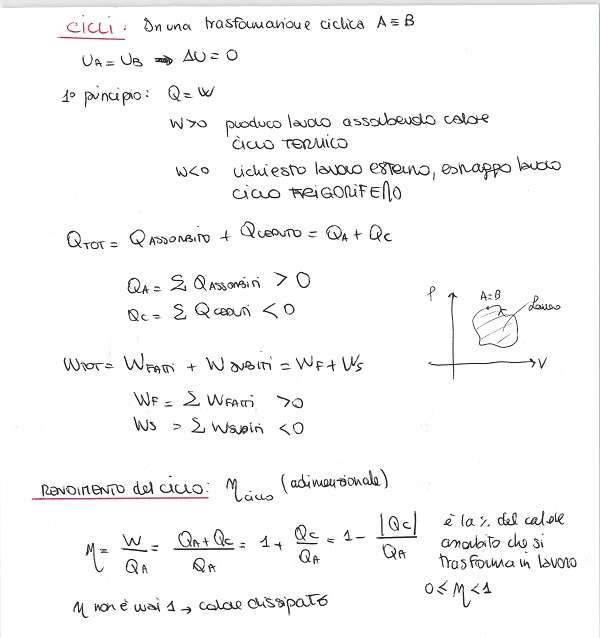 CICLI: In una trasformazione ciclica A ≡ B
U_A = U_B ⇒ ΔU = 0
1° principio: Q = W
W>0 produco lavoro assorbendo calore
ciclo TERMICO
W<0 richiesto lavoro esterno, estraggo lavoro
ciclo FRIGORIFERO
Q_TOT = Q_ASSORBITO + Q_CEDUTO = Q_A + Q_C
Q_A = Σ Q_ASSORBITI > 0
Q_C = Σ Q_CEDUTI < 0
P A≡B Lavoro
V
W_TOT = W_FATTI + W_SUBITI = W_F + W_S
W_F = Σ W_FATTI > 0
W_S = Σ W_SUBITI < 0
RENDIMENTO del CICLO: η_ciclo (adimensionale)
η = W/Q_A = (Q_A + Q_C)/Q_A = 1 + Q_C/Q_A = 1 - |Q_C|/Q_A
è la % del calore
assorbito che si
trasforma in lavoro
0 ≤ η < 1
η non è mai 1 → calore dissipato